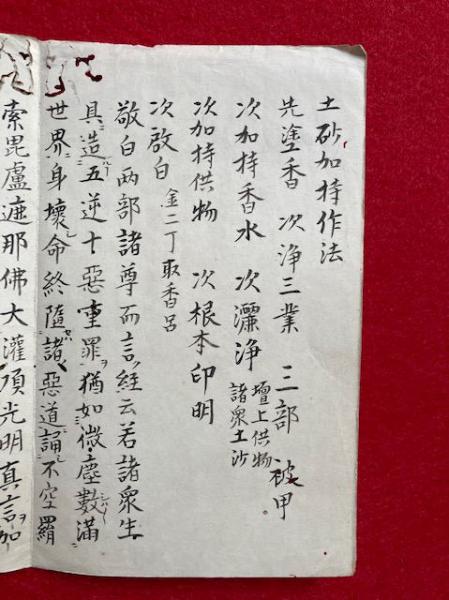 土砂加持作法
先塗香 次浄三業 三部 被甲
次加持香水 次灑浄 壇上供物 諸衆土沙
次加持供物 次根本印明
次啟白 金二丁 取香呂
敬白两部諸尊而言ク経云若諸衆生
具造ルハ五逆十惡重罪ヲ猶如微塵數満
世界身壊命終隨諸惡道誦不空羂
索毘盧遮那佛大灌頂光明真言ヲ加